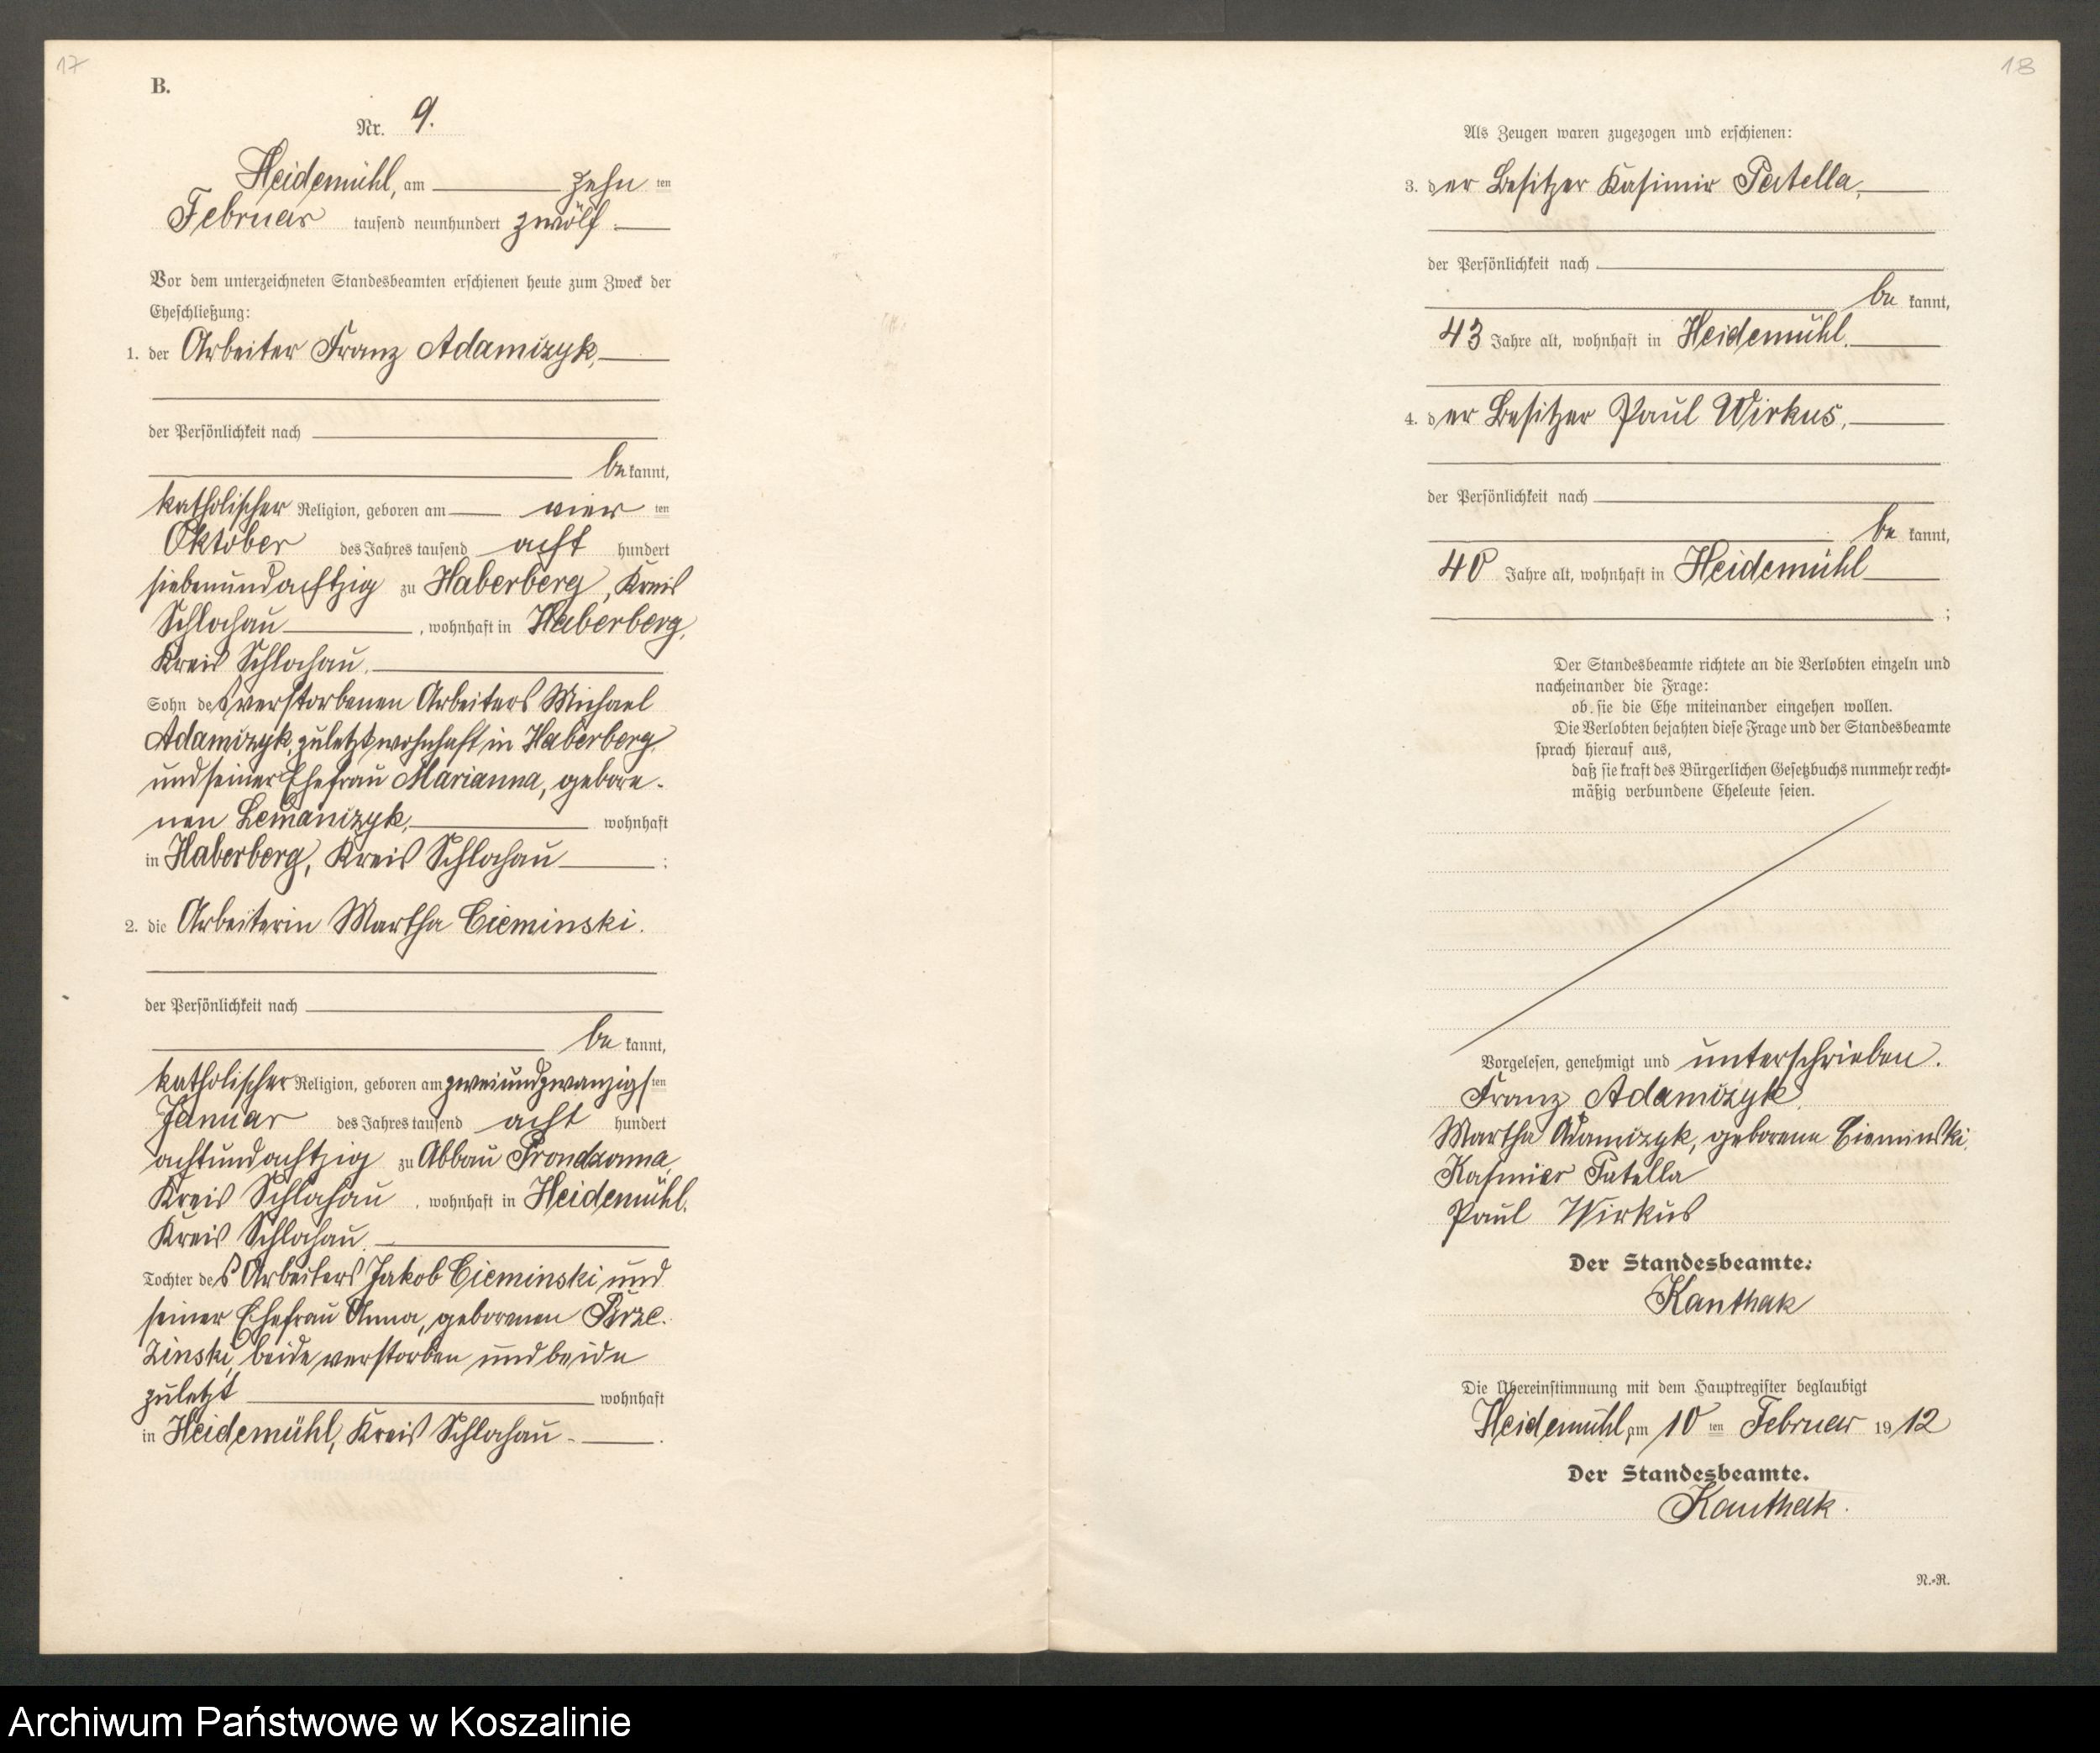 17
B.
Nr. 9.
Heidemühl, am zehn ten
Februar tausend neunhundert zwölf.
Vor dem unterzeichneten Standesbeamten erschienen heute zum Zweck der
Eheschließung:
1. der Arbeiter Franz Adamizyk,
der Persönlichkeit nach
be kannt,
katholischer Religion, geboren am vier ten
Oktober des Jahres tausend acht hundert
siebenundachtzig zu Haberberg, Kreis
Schlochau, wohnhaft in Haberberg,
Kreis Schlochau.
Sohn des verstorbenen Arbeiters Michael
Adamizyk, zuletzt wohnhaft in Haberberg
und seiner Ehefrau Marianna, gebore-
nen Lemanizyk, wohnhaft
in Haberberg, Kreis Schlochau ;
2. die Arbeiterin Martha Cieminski.
der Persönlichkeit nach
be kannt,
katholischer Religion, geboren am zweiundzwanzigsten
Januar des Jahres tausend acht hundert
achtundachtzig zu Abbau
Kreis Schlochau, wohnhaft in Heidemühl,
Kreis Schlochau.
Tochter des Arbeiters Jakob Cieminski und
seiner Ehefrau Anna, geborenen
zinski, beide verstorben und beide
zuletzt wohnhaft
in Heidemühl, Kreis Schlochau.
18
Als Zeugen waren zugezogen und erschienen:
3. der Besitzer Kasimir Patella,
der Persönlichkeit nach
be kannt,
43 Jahre alt, wohnhaft in Heidemühl.
4. der Besitzer Paul Wirkus,
der Persönlichkeit nach
be kannt,
40 Jahre alt, wohnhaft in Heidemühl
;
Der Standesbeamte richtete an die Verlobten einzeln und
nacheinander die Frage:
ob sie die Ehe miteinander eingehen wollen.
Die Verlobten bejahten diese Frage und der Standesbeamte
sprach hierauf aus,
daß sie kraft des Bürgerlichen Gesetzbuchs nunmehr recht-
mäßig verbundene Eheleute seien.
Vorgelesen, genehmigt und unterschrieben.
Franz Adamizyk.
Martha Adamizyk, geborene Cieminski.
Kasimier Patella
Paul Wirkus
Der Standesbeamte:
Kanthak
Die Übereinstimmung mit dem Hauptregister beglaubigt
Heidemühl, am 10 ten Februar 1912
Der Standesbeamte.
Kanthak.
N.-R.
Archiwum Państwowe w Koszalinie